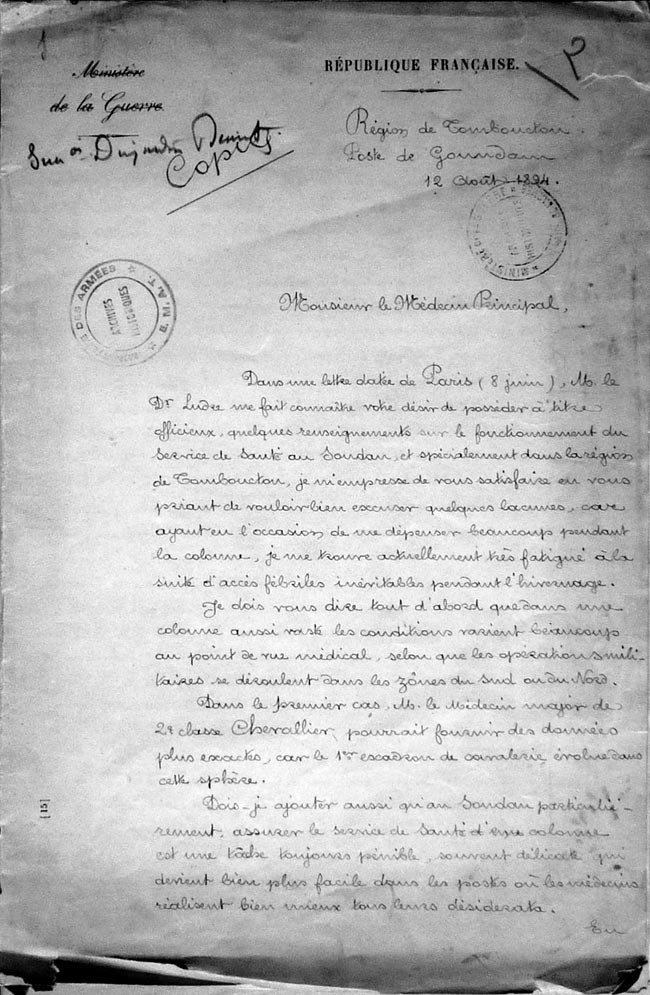 Ministère
de la Guerre
RÉPUBLIQUE FRANÇAISE.
2
Copie
Région de Tombouctou.
Poste de Goundam
12 Août 1894.
ARCHIVES
HISTORIQUES
DES ARMÉES
Monsieur le Médecin Principal,
Dans une lettre datée de Paris (8 juin), M. le
Dr Ludre me fait connaître votre désir de posséder à titre
officieux, quelques renseignements sur le fonctionnement du
Service de Santé au Soudan, et spécialement dans la région
de Tombouctou, je m'empresse de vous satisfaire en vous
priant de vouloir bien excuser quelques lacunes, car
ayant eu l'occasion de me dépenser beaucoup pendant
la colonne, je me trouve actuellement très fatigué à la
suite d'accès fébriles inévitables pendant l'hivernage.
Je dois vous dire tout d'abord que dans une
colonne aussi vaste les conditions varient beaucoup
au point de vue médical, selon que les opérations mili-
taires se déroulent dans les zônes du Sud ou du Nord.
Dans le premier cas, M. le Médecin major de
2e classe Chevallier, pourrait fournir des données
plus exactes, car le 1er escadron de cavalerie évolue dans
cette sphère.
Dois-je ajouter aussi qu'au Soudan particuliè-
rement, assurer le service de Santé d'une colonne
est une tâche toujours pénible, souvent délicate qui
devient bien plus facile dans les postes où les médecins
réalisent bien mieux tous leurs désiderata.
En
[15]